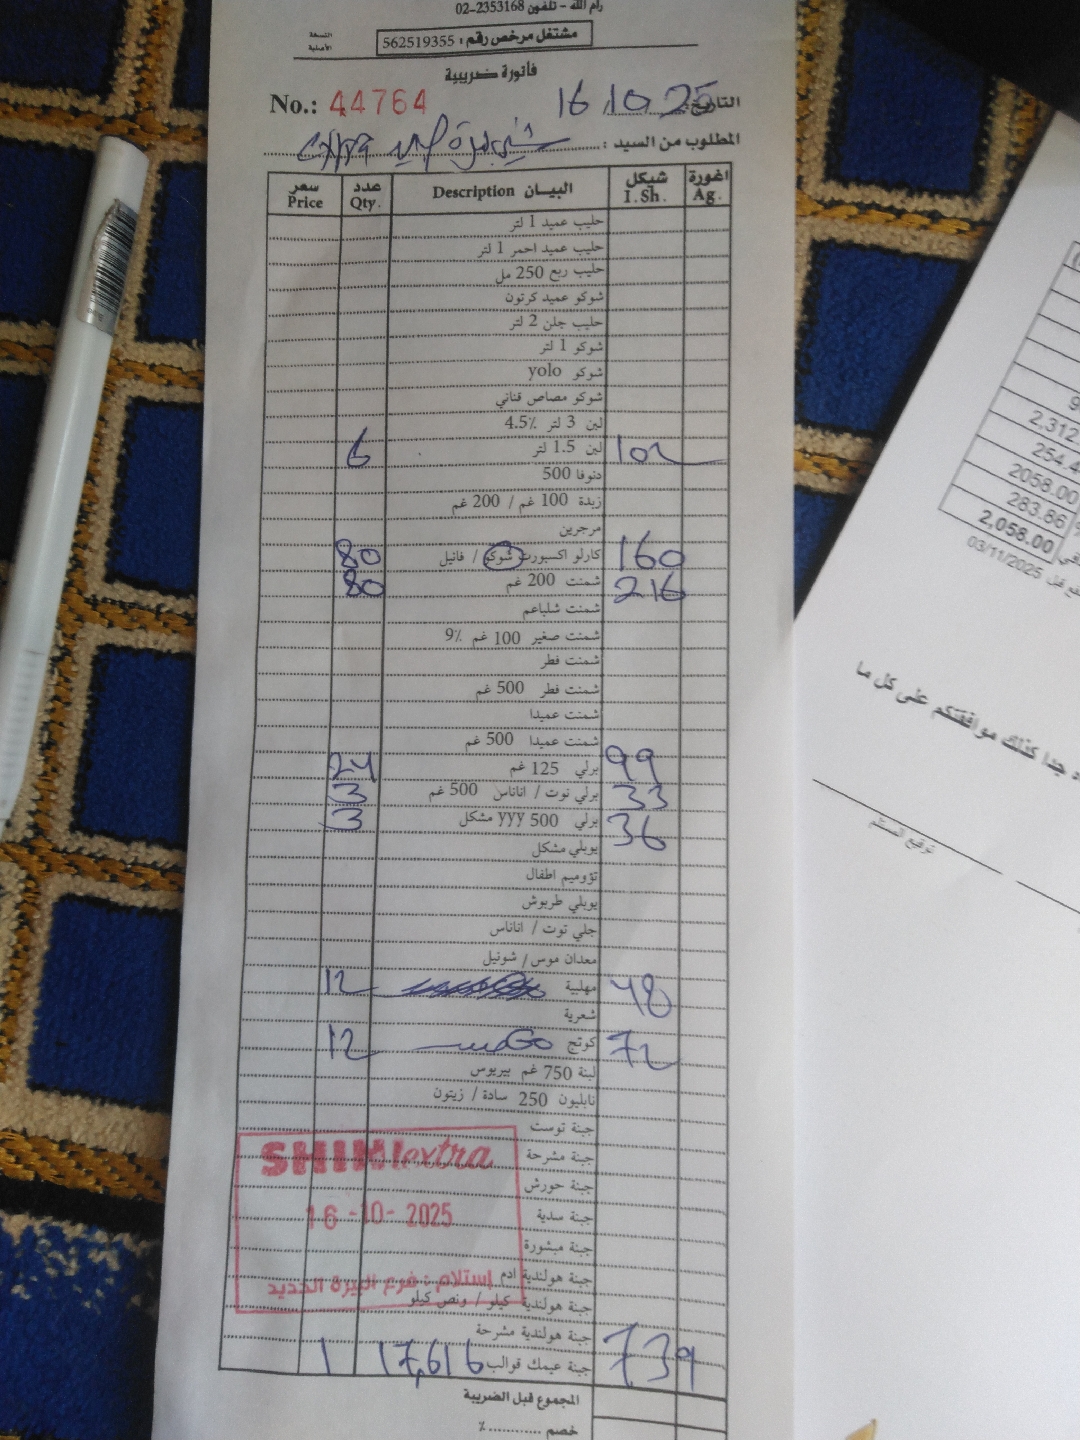 رام الله - تلفون 02-2353168
النسخة الأصلية
مشتغل مرخص رقم : 562519355
فاتورة ضريبية
No.: 44764 التاريخ: 16.10.25
المطلوب من السيد : البيرة extra
اغورة Ag. شيكل I.Sh. البيـــان Description عدد Qty. سعر Price
حليب عميد 1 لتر
حليب عميد احمر 1 لتر
حليب ربع 250 مل
شوكو عميد كرتون
حليب جلن 2 لتر
شوكو 1 لتر
شوكو yolo
شوكو مصاص قناني
لبن 3 لتر 4.5%
102 لبن 1.5 لتر 6
دنوفا 500
زبدة 100 غم / 200 غم
مرجرين
160 كارلو اكسبورت شوكو / فانيل 80
216 شمنت 200 غم 80
شمنت شلباعم
شمنت صغير 100 غم 9%
شمنت فطر
شمنت فطر 500 غم
شمنت عميدا
شمنت عميدا 500 غم
99 برلي 125 غم 24
33 برلي توت / اناناس 500 غم 3
36 برلي 500 yyy مشكل 3
يوبلي مشكل
تؤوميم اطفال
يوبلي طربوش
جلي توت / اناناس
معدان موس / شونيل
48 مهلبية 12
شعرية
72 كوتج 12
لبنة 750 غم بيريوس
نابليون 250 سادة / زيتون
جبنة توست
جبنة مشرحة
جبنة حورش
جبنة سدية
جبنة مبشورة
جبنة هولندية ادم
جبنة هولندية كيلو / ونص كيلو
جبنة هولندية مشرحة
739 جبنة عيمك قوالب 17,616 1
المجموع قبل الضريبة
خصم ............ %
SHINI extra
16-10-2025
إستلام : فرع البيرة الجديد
2,312
254.4
2058.00
283.86
2,058.00
03/11/2025
جدا كذلك موافقتكم على كل ما
توقيع المستلم